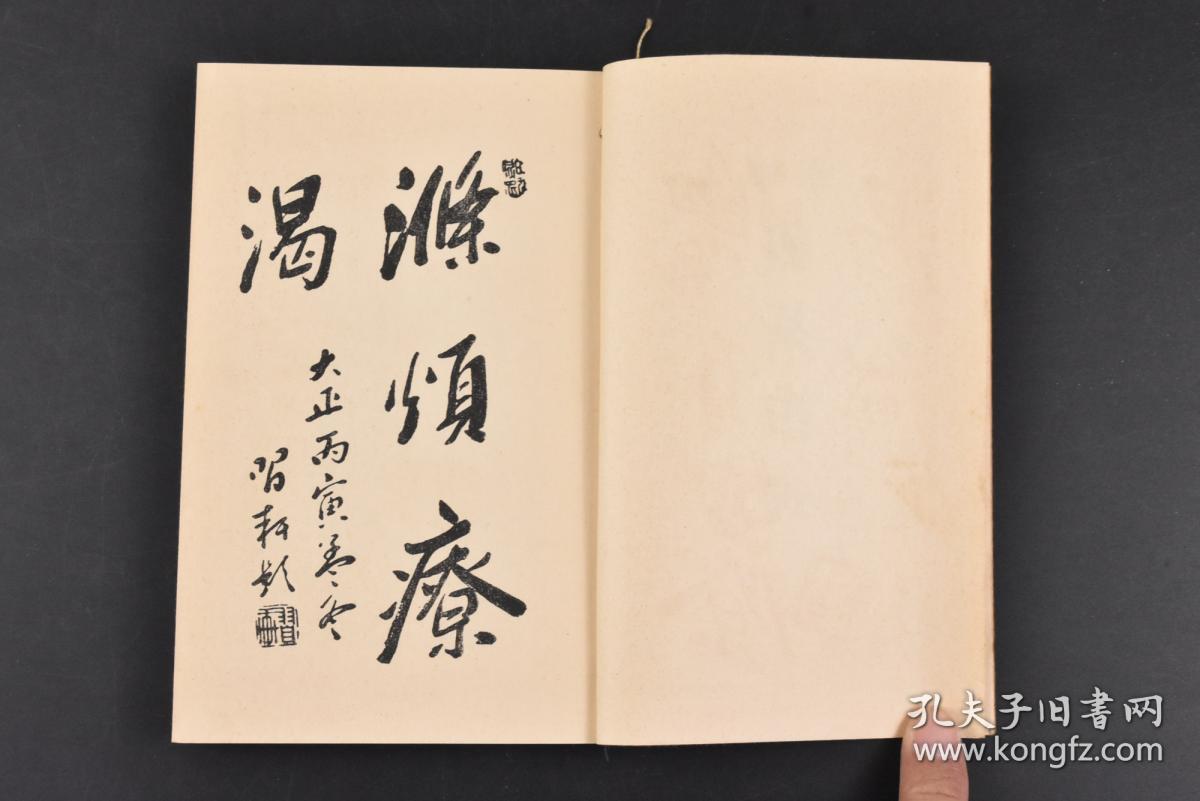 滌煩療
渴
大正丙寅孟冬
習題
孔夫子旧書网
www.kongfz.com